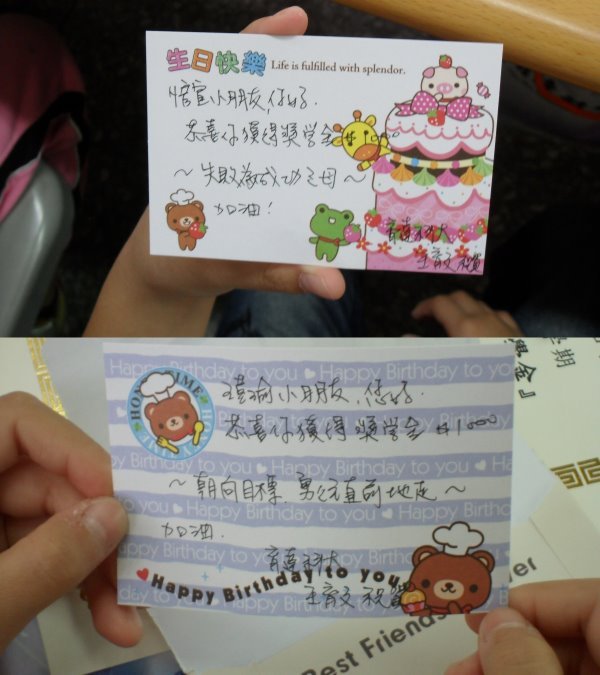 生日快樂 Life is fulfilled with splendor.
小朋友,您好.
恭喜你獲得獎学金 $1000
～失敗為成功之母～
加油!
育達科大
王育文 祝賀
Happy Birthday to you ♥ Happy Birthday to you
HONEY TIME
瑾瑜小朋友,您好.
恭喜你獲得獎学金 $1000
～朝向目標 勇往直前地走～
加油.
育達科大
Happy Birthday to you
王育文 祝賀
期
金』
Best Friends